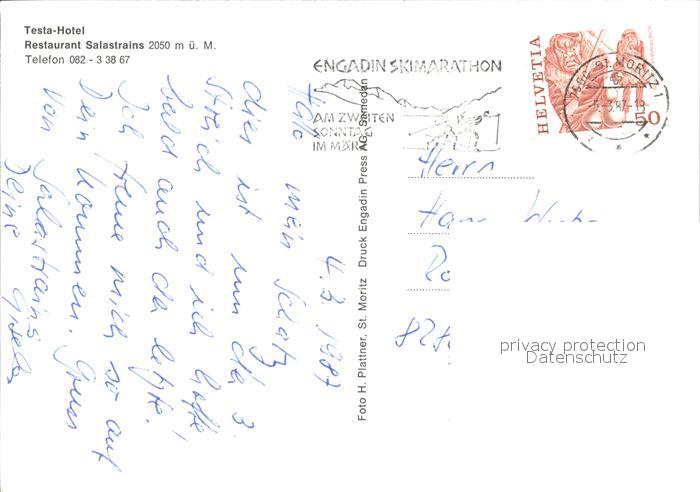 Testa-Hotel
Restaurant Salastrains 2050 m ü. M.
Telefon 082 - 3 38 67
ENGADIN SKIMARATHON
AM ZWEITEN
SONNTAG
IM MÄRZ
HELVETIA
50
7500 ST. MORITZ 1
5.-3.87-19
4.3.1987
Hallo mein Schatz
dies ist nun der 3.
Streich und ich hoffe
bald auch der letzte!
Ich freue mich so auf
Dein kommen. Gruss
von Salastrains
Deine Gisela
Foto H. Plattner, St. Moritz Druck Engadin Press AG, Samedan
Herrn
Hans
828
privacy protection
Datenschutz